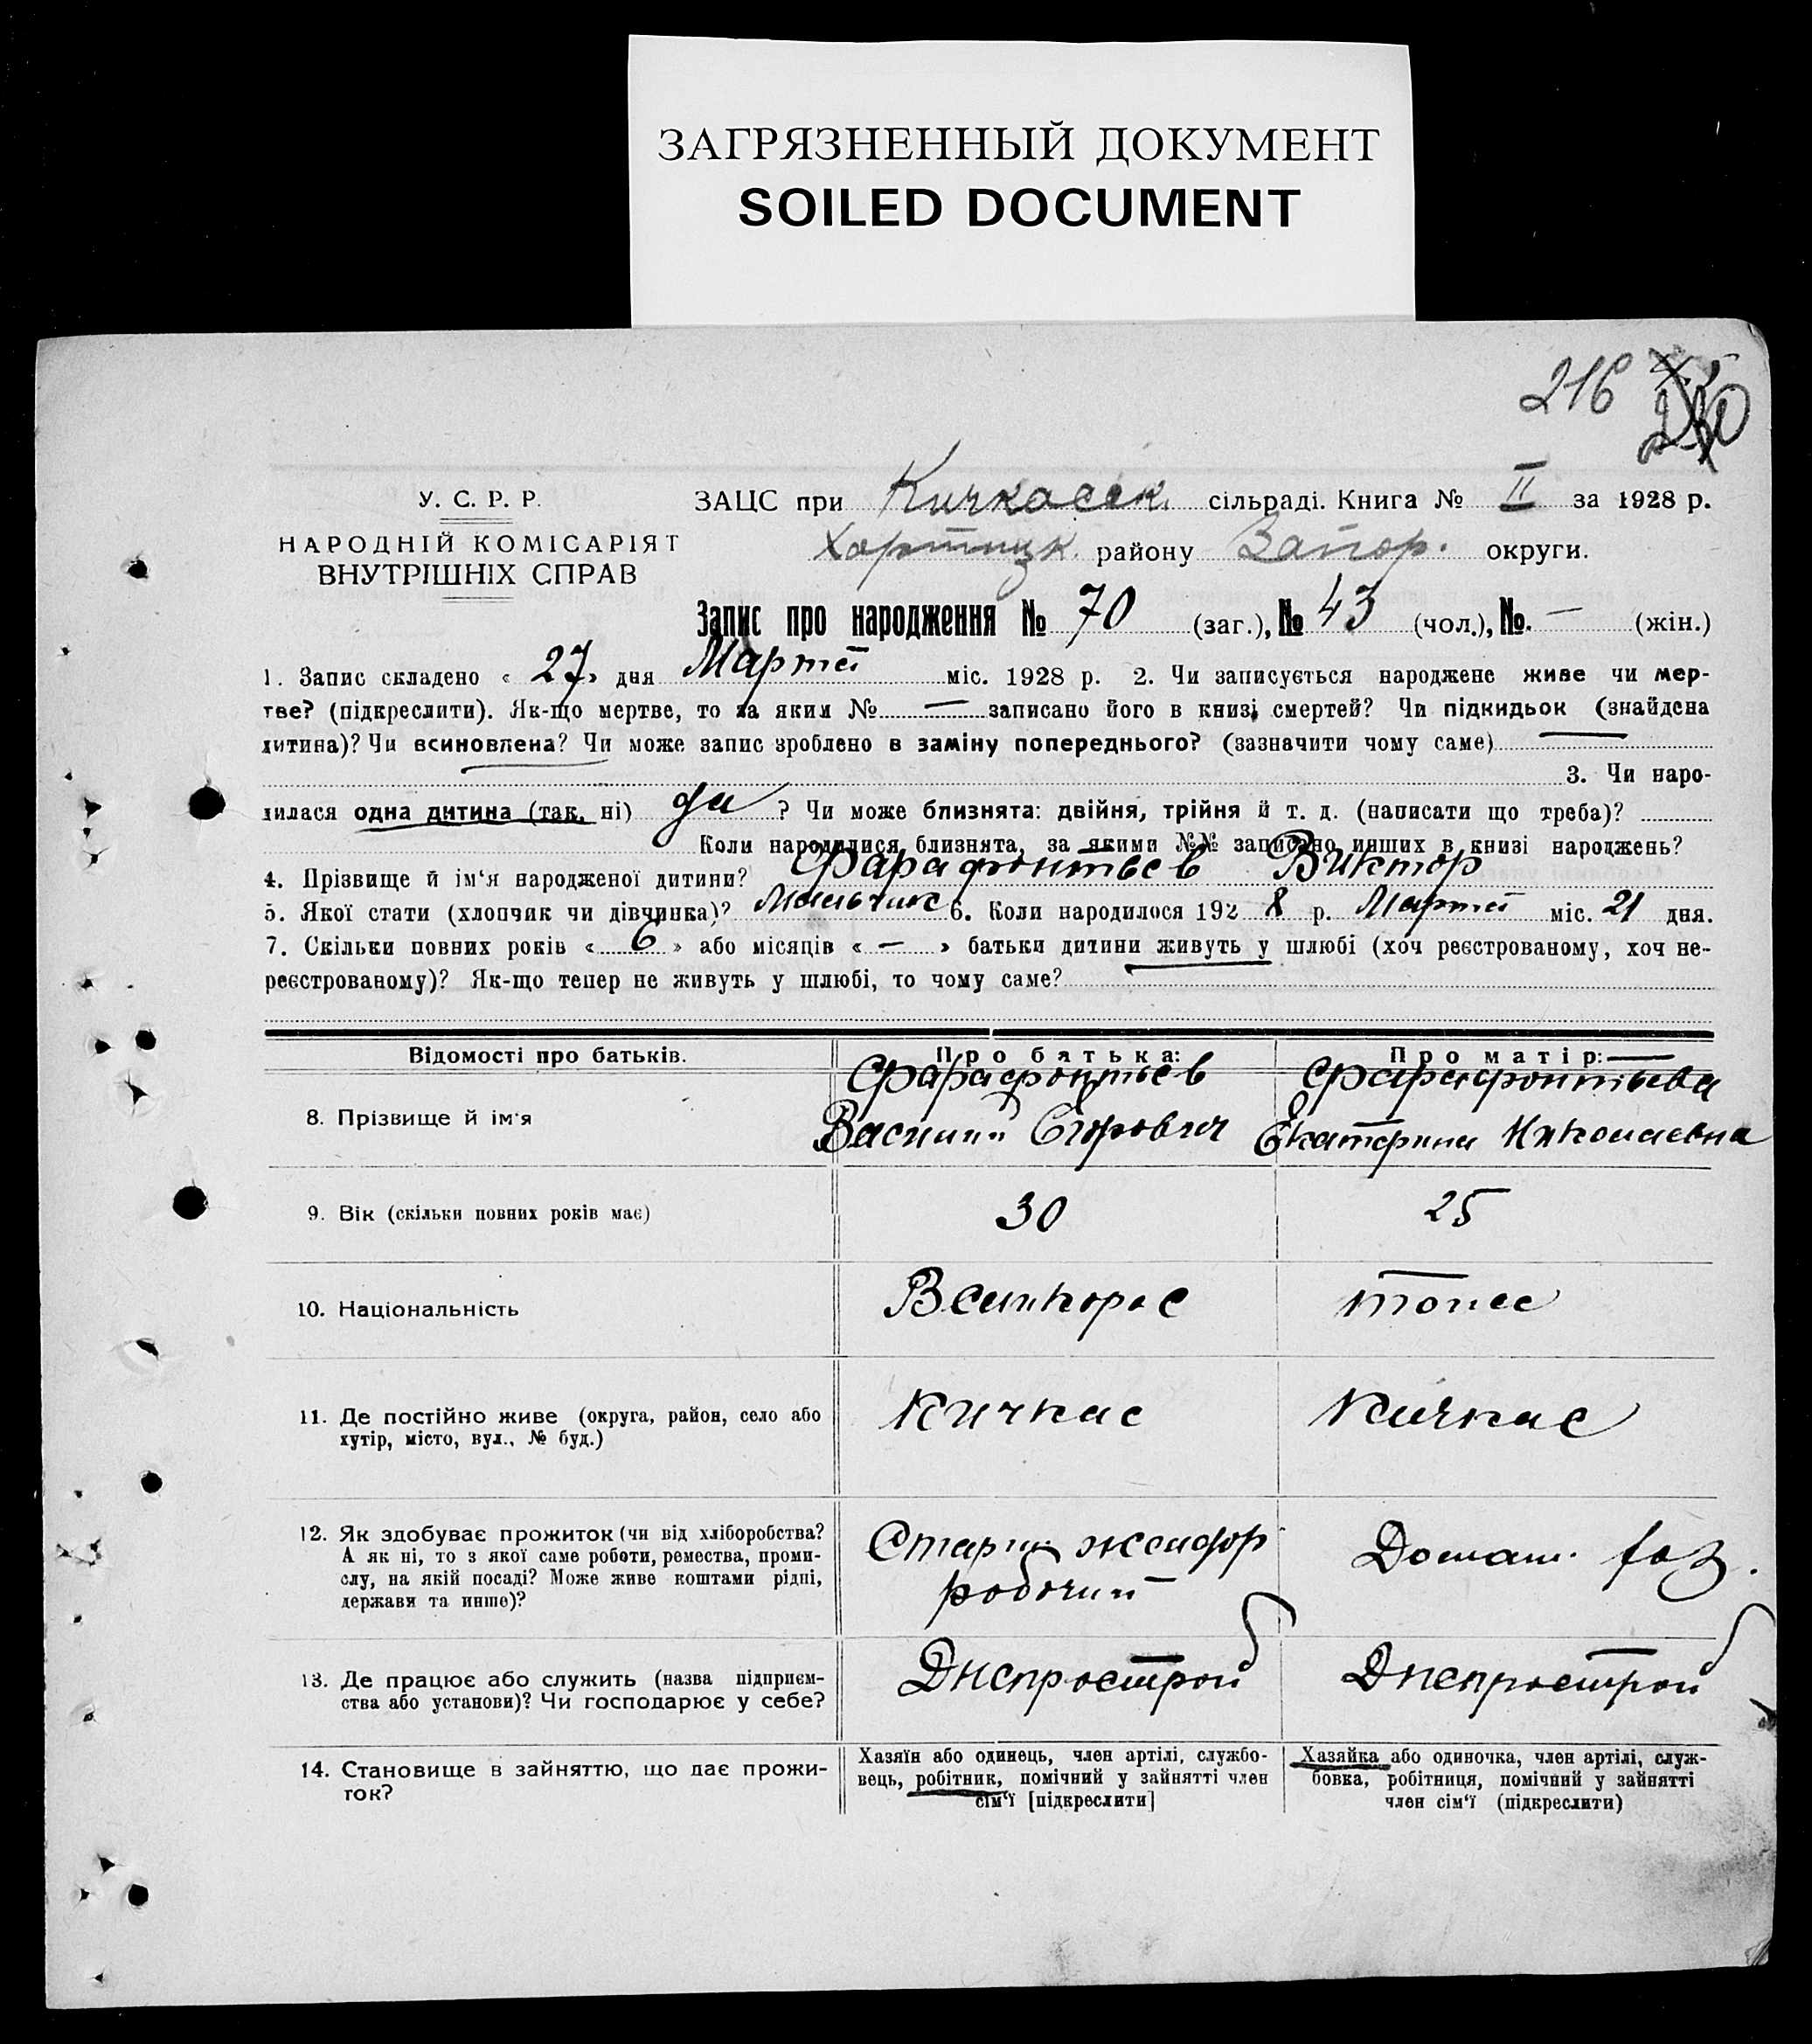 ЗАГРЯЗНЕННЫЙ ДОКУМЕНТ
SOILED DOCUMENT
216
У. С. Р. Р.
НАРОДНІЙ КОМІСАРІЯТ
ВНУТРІШНІХ СПРАВ
ЗАЦС при Кичкасск. сільраді. Книга № II за 1928 р.
Хортицк. району Запор. округи.
Запис про народження № 70 (заг.), № 43 (чол.), №. — (жін.)
1. Запис складено « 27 » дня Марта міс. 1928 р. 2. Чи записується народжене живе чи мер-
тве? (підкреслити). Як-що мертве, то за яким № — записано його в книзі смертей? Чи підкидьок (знайдена
дитина)? Чи всиновлена? Чи може запис зроблено в заміну попереднього? (зазначити чому саме) —
3. Чи наро-
дилася одна дитина (так, ні) да ? Чи може близнята: двійня, трійня й т. д. (написати що треба)?
Коли народилися близнята, за якими №№ записано инших в книзі народжень?
4. Прізвище й ім‘я народженої дитини? Фарафонтьев Виктор
5. Якої стати (хлопчик чи дівчинка)? Мальчик 6. Коли народилося 192 8 р. Марта міс. 21 дня.
7. Скільки повних років « 6 » або місяців « — » батьки дитини живуть у шлюбі (хоч реєстрованому, хоч не-
реєстрованому)? Як-що тепер не живуть у шлюбі, то чому саме?
Відомості про батьків. Про батька: Про матір:
8. Прізвище й ім‘я Фарафонтьев Василий Егорович Фарафонтьева Екатерина Николаевна
9. Вік (скільки повних років має) 30 25
10. Національність Великорос тоже
11. Де постійно живе (округа, район, село або
хутір, місто, вул., № буд.) Кичкас Кичкас
12. Як здобуває прожиток (чи від хліборобства?
А як ні, то з якої саме роботи, ремества, проми-
слу, на якій посаді? Може живе коштами рідні,
держави та инше)? рабочий Домаш. хоз.
13. Де працює або служить (назва підприєм-
ства або установи)? Чи господарює у себе? Днепрострой Днепрострой
14. Становище в зайняттю, що дає прожи-
ток?
Хазяїн або одинець, член артілі, службо-
вець, робітник, помічний у зайнятті член
сім‘ї [підкреслити]
Хазяйка або одиночка, член артілі, служ-
бовка, робітниця, помічний у зайнятті
член сім‘ї (підкреслити)